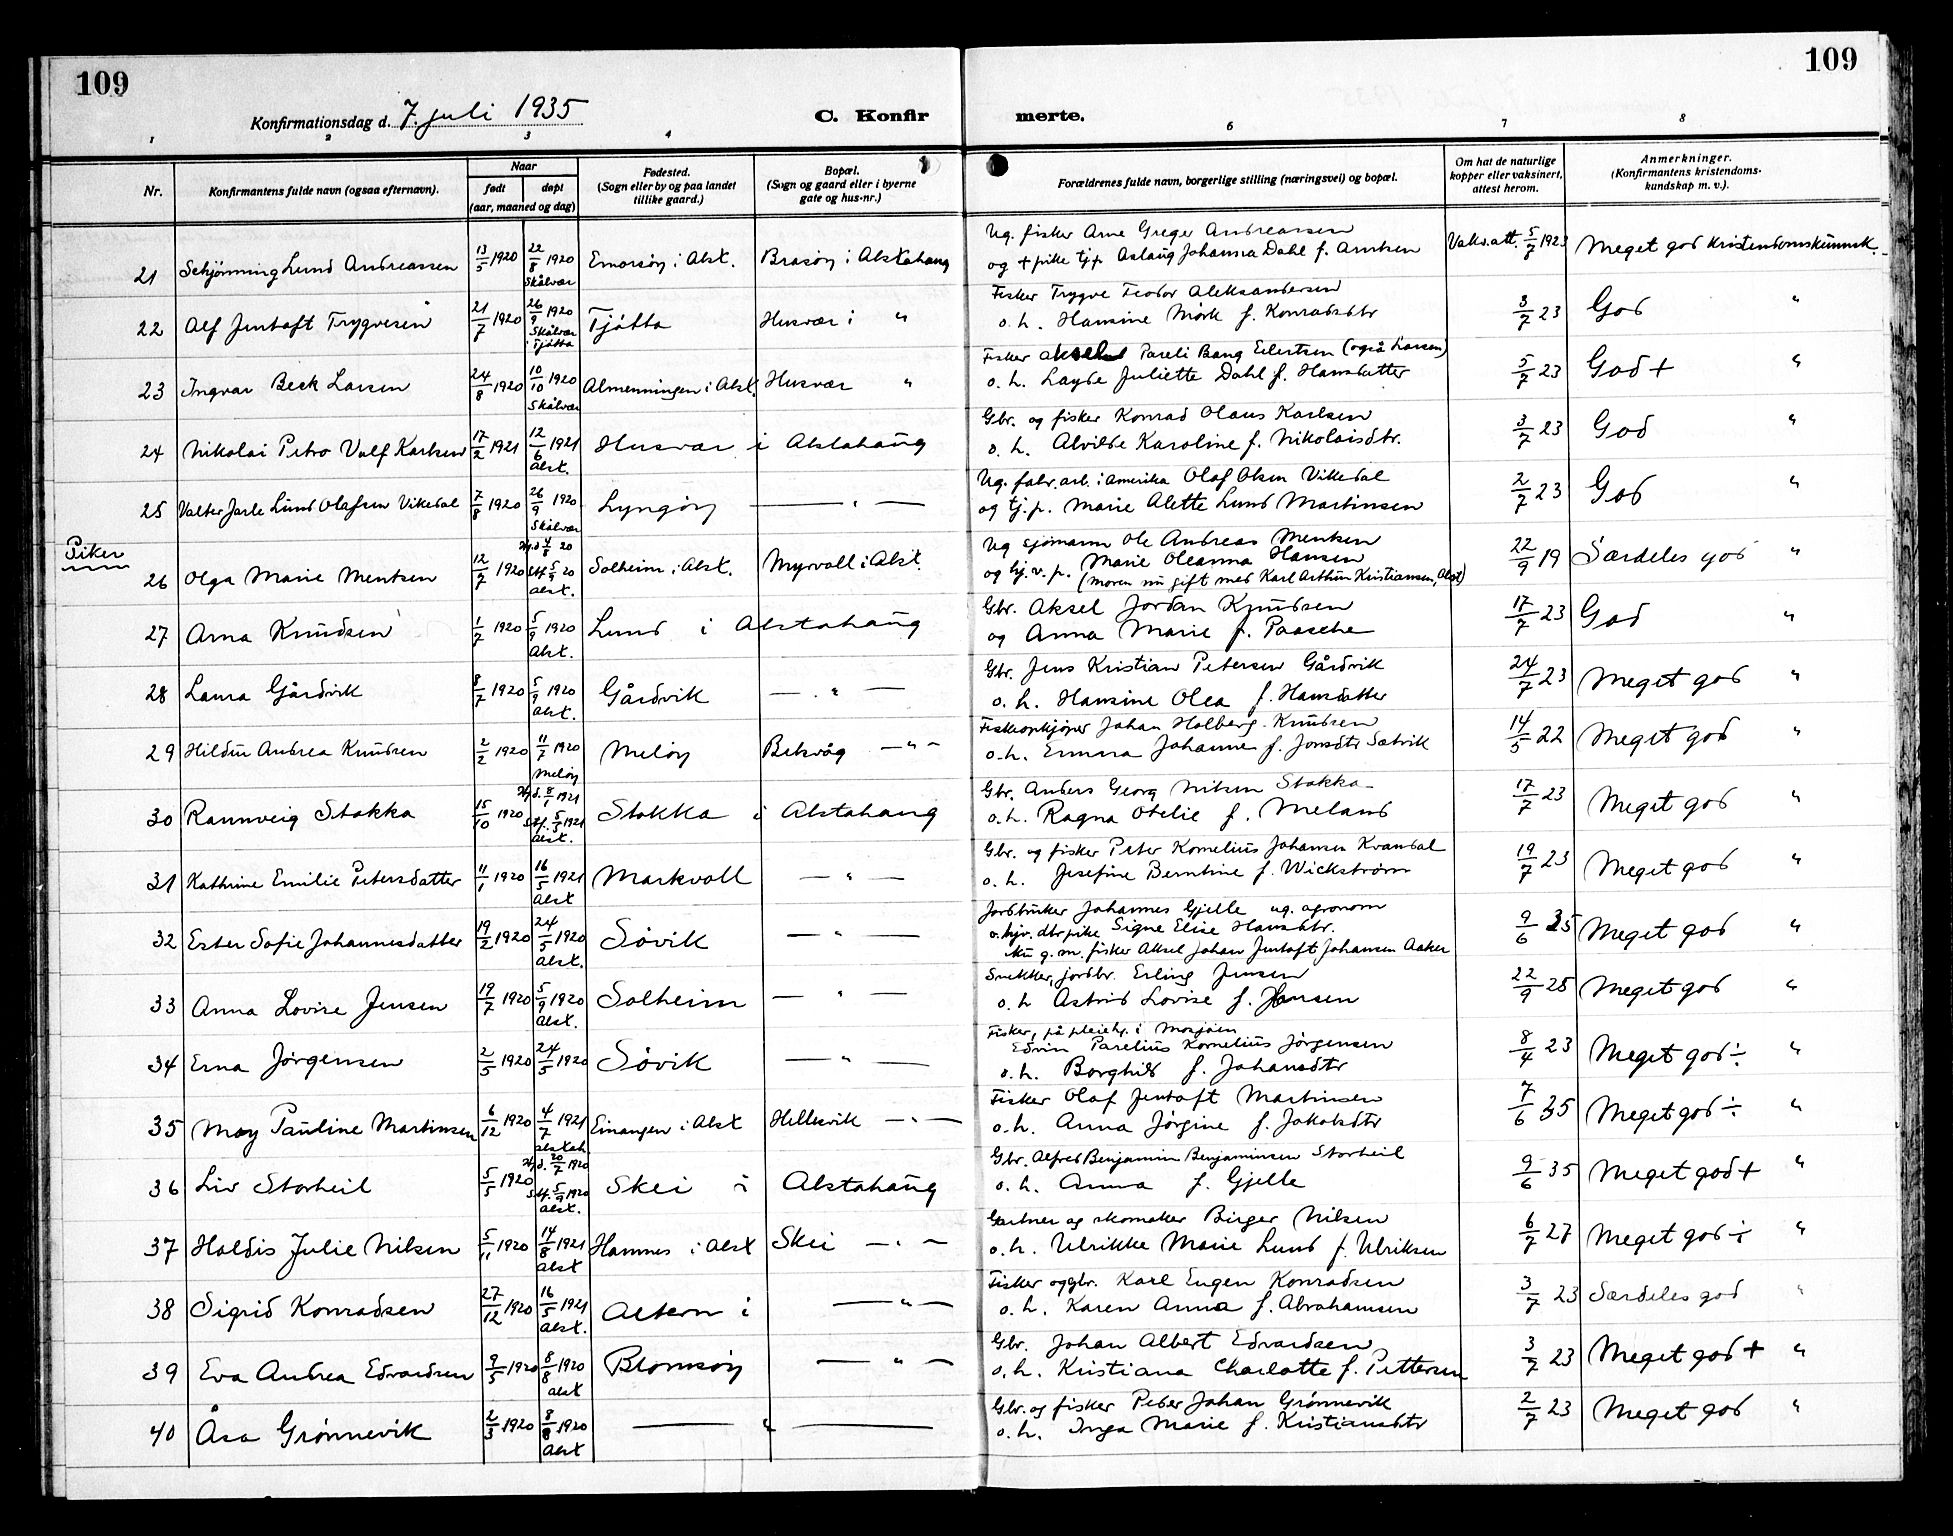 109
109
Konfirmationsdag d. 7. juli 1935
C. Konfir
merte.
1 2 3 4 6 7 8
Nr.
Konfirmantens fulde navn (ogsaa efternavn).
Naar
født døpt
(aar, maaned og dag)
Fødested.
(Sogn eller by og paa landet
tillike gaard.)
Bopæl.
(Sogn og gaard eller i byerne
gate og hus-nr.)
Forældrenes fulde navn, borgerlige stilling (næringsvei) og bopæl.
Om hat de naturlige
kopper eller vaksinert,
attest herom.
Anmerkninger.
(Konfirmantens kristendoms-
kundskap m. v.).
Ug. fisker Arne Greger Andreassen
21 Schjønning Lund Andreassen 13/5 1920 22/8 1920 Skålvær i Alst. Brasøy i Alstahaug og + pike tjp Aslaug Johanna Dahl f. Arntsen Vaks.att. 5/7 1923 Meget god kristendomskunnsk.
Fisker Trygve Teodor Aleksandersen
22 Alf Jentoft Trygvesen 21/7 1920 26/9 1920 Skålvær i Tjøtta Tjøtta Husvær i " o. h. Hansine Mørk f. Konradsdtr 3/7 23 God "
Fisker Aksel Pareli Bang Eilertsen (også Larsen)
23 Ingvar Beck Larsen 24/8 1920 10/10 1920 Skålvær Almenningen i Alst. Husvær " o. h. Layde Juliette Dahl f. Hansdatter 5/7 23 God + "
Gbr. og fisker Konrad Olaus Karlsen
24 Nikolai Petro Valf Karlsen 17/2 1921 12/6 1921 Alst. Husvær i Alstahaug o. h. Alvilde Karoline f. Nikolaisdtr. 3/7 23 God "
Ug. fabr. arb. i Amerika Olaf Olsen Vikedal
25 Valter Jarle Lund Olafsen Vikedal 7/8 1920 26/9 1920 Skålvær Lyngøy — " — og tj. p. Marie Alette Lund Martinsen 2/7 23 God "
Piker
Ug sjømann Ole Andreas Mentsen
26 Olga Marie Mentsen 12/7 1920 Hj.d 4/8 20 Stf 5/9 20 Alst. Solheim i Alst. Myrvoll i Alst. og hj. v. p. Marie Oleanna Hansen 22/9 19 Særdeles god "
(moren nu gift med Karl Arthur Kristiansen, Alst)
Gbr. Aksel Jordan Knudsen
27 Arna Knudsen 1/7 1920 5/9 1920 Alst. Lund i Alstahaug og Anna Marie f. Paasche 17/7 23 God "
Gbr. Jens Kristian Petersen Gårdvik
28 Laura Gårdvik 8/7 1920 5/9 1920 Alst. Gårdvik — " — o. h. Hansine Olea f. Hansdatter 24/7 23 Meget god "
Fiskeopkjøper Johan Holberg Knudsen
29 Hildur Andrea Knudsen 2/2 1920 11/7 1920 Meløy Meløy Belsvåg — " — o. h. Emma Johanne f. Jonsdtr Satvik 14/5 22 Meget god "
Gbr. Anders Georg Nilsen Stokka
30 Rannveig Stokka 15/10 1920 Hj.d. 8/1 1921 Stf. 5/5 1921 Alst. Stokka i Alstahaug o. h. Ragna Otelie f. Meland 17/7 23 Meget god "
Gbr. og fisker Peter Kornelius Johansen Kvandal
31 Kathrine Emilie Petersdatter 11/1 1920 16/5 1921 Alst Markvoll — " — o. h. Jesefine Berntine f. Wickstrøm 19/7 23 Meget god "
Jordbruker Johannes Gjelle ug. agronom
32 Ester Sofie Johannesdatter 19/2 1920 24/5 1920 Alst. Søvik — " — o. hjv. dtr pike Signe Elise Hansdtr. 9/6 35 Meget god "
nu g. m. fisker Aksel Johan Jentoft Johansen Aaker
Snekker, jordbr. Erling Jensen
33 Anna Lovise Jensen 19/7 1920 5/9 1920 Alst. Solheim — " — o. h Astrid Lovise f. Jensen 22/9 25 Meget god "
Fisker, på pleiehj. i Mosjøen
Edvin Parelius Kornelius Jørgensen
34 Erna Jørgensen 2/5 1920 24/5 1920 Søvik — " — o. h. Borghild f. Johansdtr 8/4 23 Meget god ÷ "
Fisker Olaf Jentoft Martinsen
35 May Pauline Martinsen 6/12 1920 4/7 1921 Alstah. Einangen i Alst Hellesvik — " — o. h. Anna Jørgine f. Jakobsdtr 7/6 35 Meget god ÷ "
Gbr. Alfred Benjamin Benjaminsen Storheil
36 Liv Storheil 5/5 1920 Hj.d. 20/7 1920 Stf. 5/9 1920 Alst. Skei i Alstahaug o. h. Anna f. Gjelle 9/6 35 Meget god + "
Gartner og skomaker Birger Nilsen
37 Haldis Julie Nilsen 5/11 1920 14/8 1921 Alst Hamnes i Alst Skei — " — o. h. Ulrikke Marie Lund f. Ulriksen 6/7 27 Meget god ÷ "
Fisker og gbr. Karl Eugen Konradsen
38 Sigrid Konradsen 27/12 1920 16/5 1921 Alst. Altern i — " — o. h. Karen Anna f. Abrahamsen 3/7 23 Særdeles god "
Gbr. Johan Albert Edvardsen
39 Eva Andrea Edvardsen 9/5 1920 8/8 1920 Alst Blomsøy — " — o. h. Kristiana Charlotte f. Pettersen 3/7 23 Meget god + "
Gbr. og fisker Peder Johan Grønnevik
40 Åsa Grønnevik 2/3 1920 8/8 1920 Alst — " — o. h. Inga Marie f. Kristiansdtr 2/7 23 Meget god "